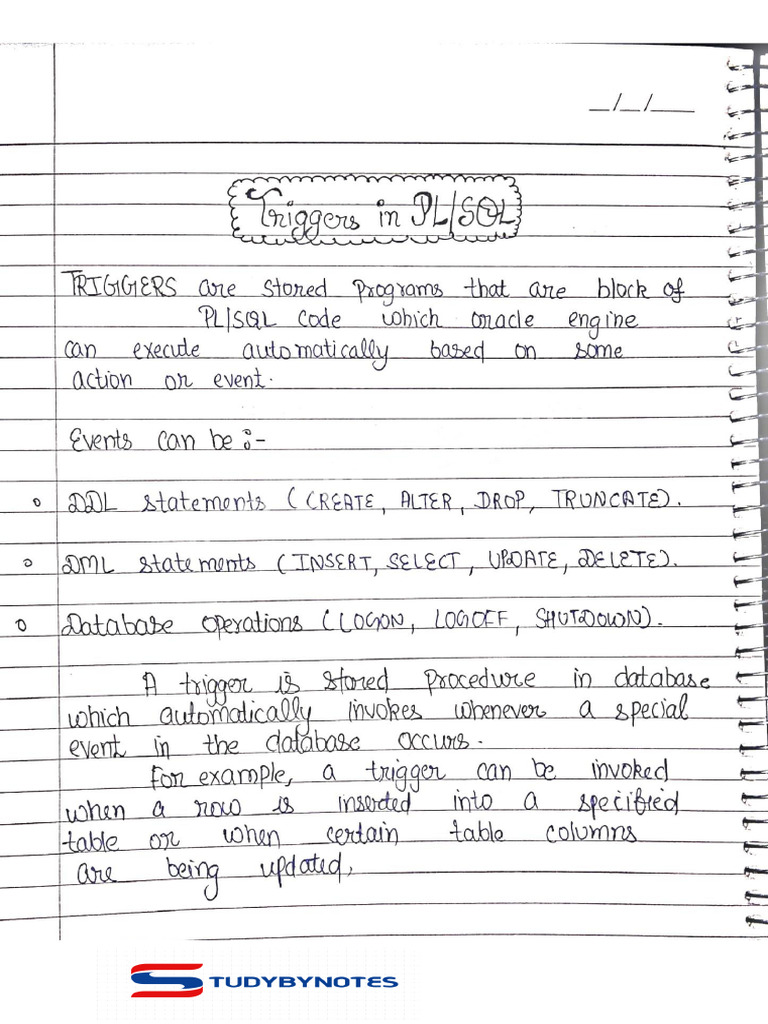 _/_/__
Triggers in PL/SQL
TRIGGERS are stored programs that are block of
PL/SQL code which oracle engine
can execute automatically based on some
action or event.
Events can be :-
o DDL statements (CREATE, ALTER, DROP, TRUNCATE).
o DML statements (INSERT, SELECT, UPDATE, DELETE).
o Database operations (LOGON, LOGOFF, SHUTDOWN).
A trigger is stored procedure in database
which automatically invokes whenever a special
event in the database occurs.
For example, a trigger can be invoked
when a row is inserted into a specified
table or when certain table columns
are being updated,
STUDYBYNOTES